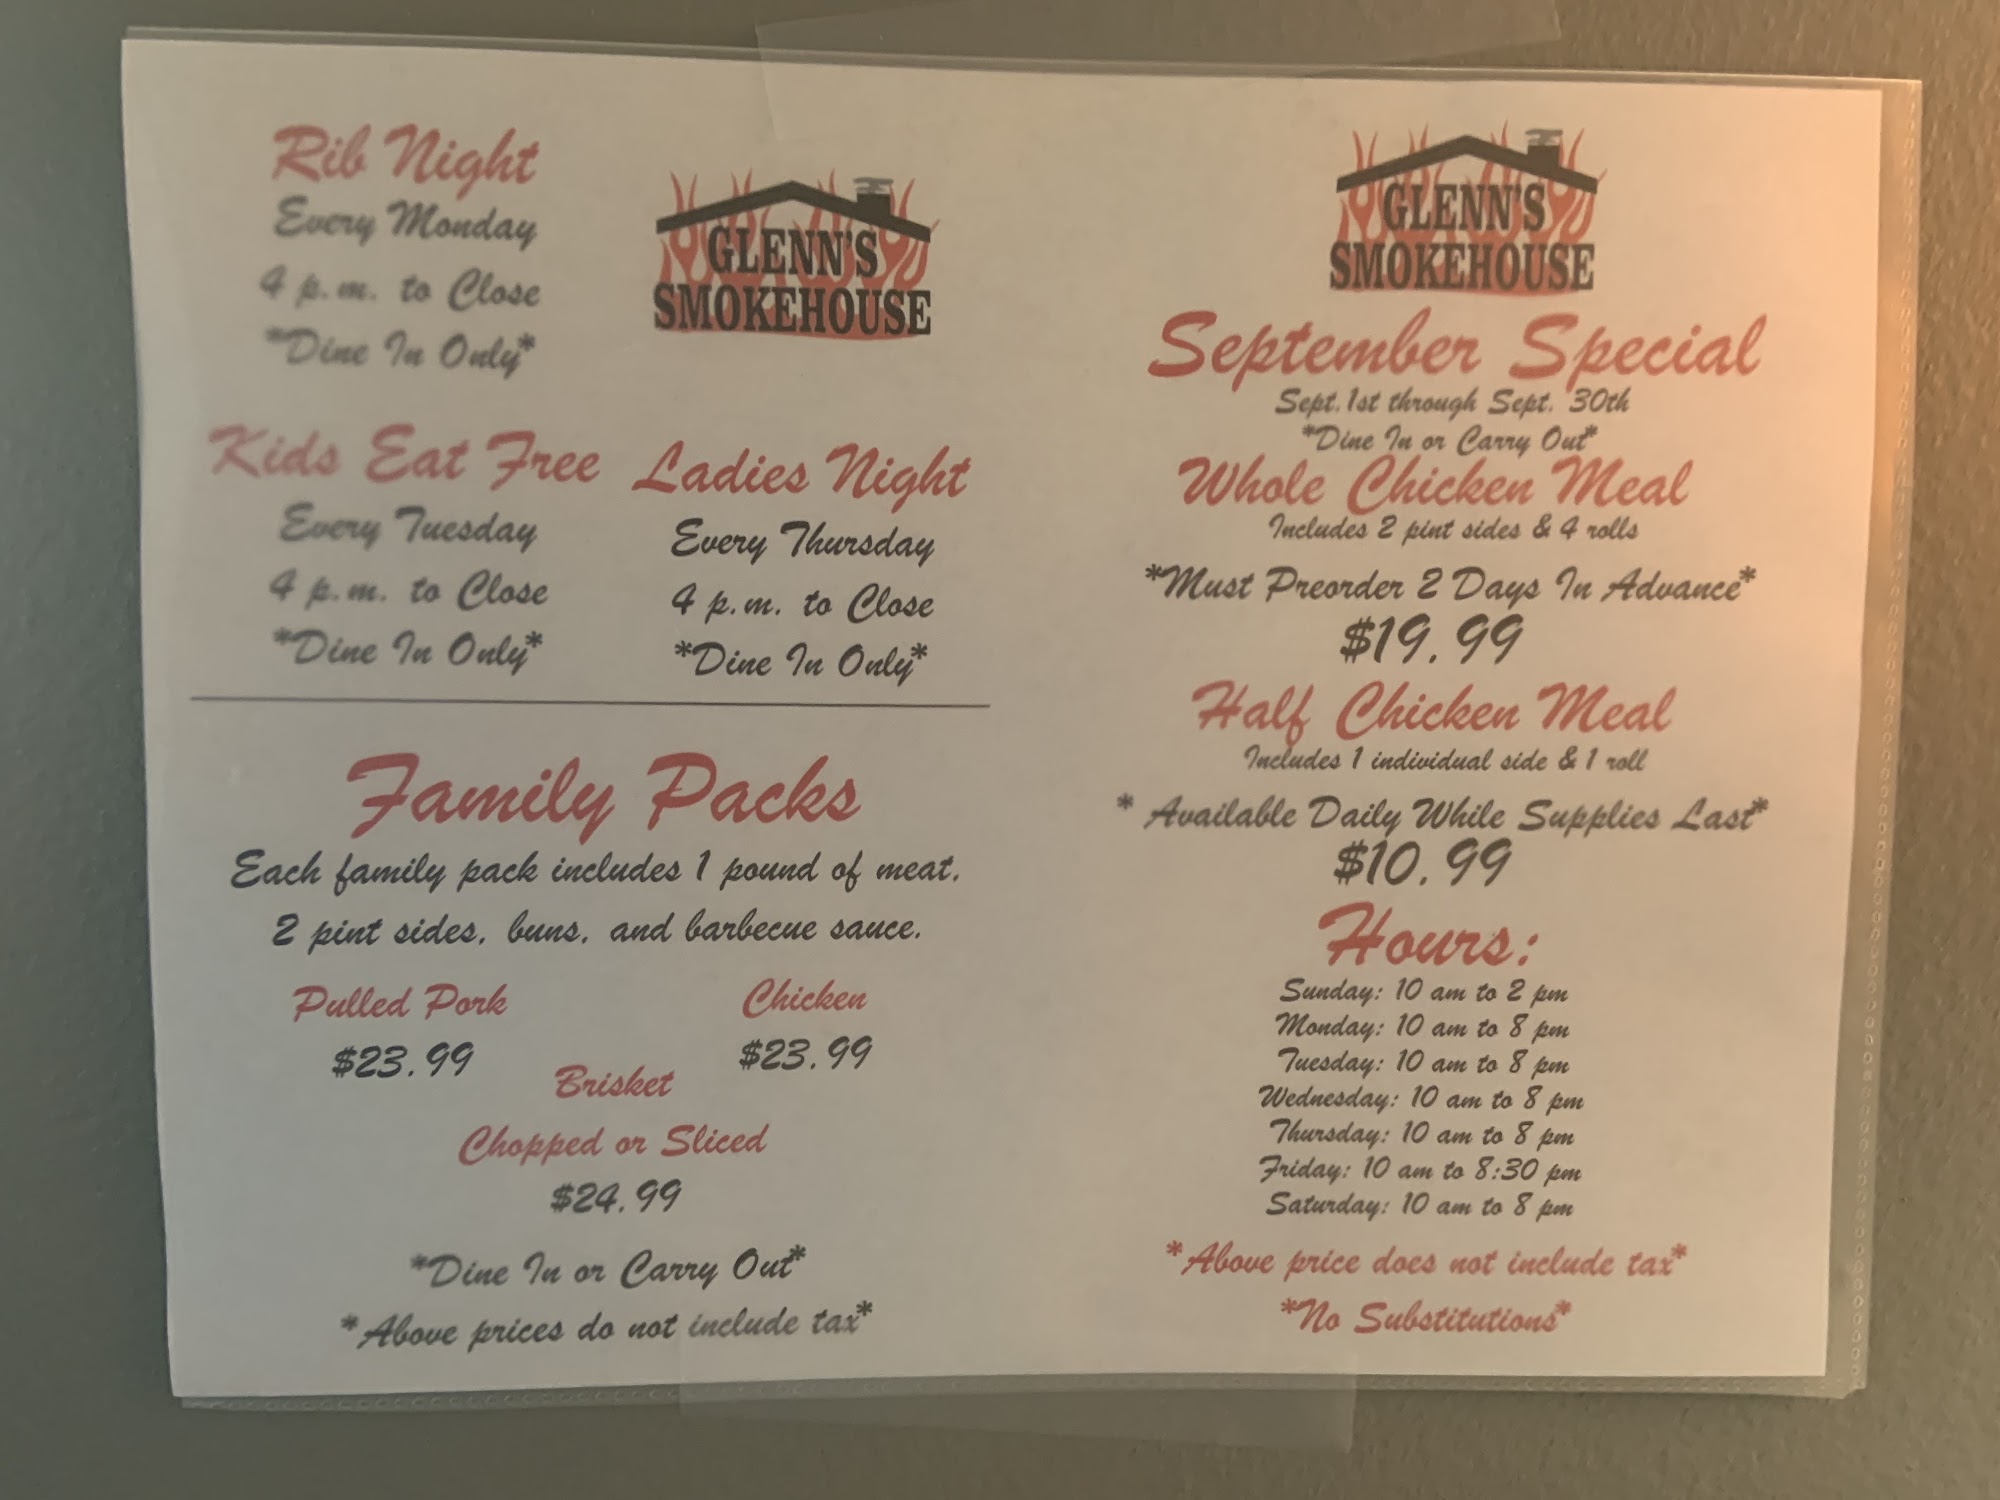 Rib Night
Every Monday
4 p.m. to Close
*Dine In Only*
GLENN'S
SMOKEHOUSE
Kids Eat Free
Every Tuesday
4 p.m. to Close
*Dine In Only*
Ladies Night
Every Thursday
4 p.m. to Close
*Dine In Only*
Family Packs
Each family pack includes 1 pound of meat,
2 pint sides, buns, and barbecue sauce.
Pulled Pork
$23.99
Chicken
$23.99
Brisket
Chopped or Sliced
$24.99
*Dine In or Carry Out*
*Above prices do not include tax*
GLENN'S
SMOKEHOUSE
September Special
Sept. 1st through Sept. 30th
*Dine In or Carry Out*
Whole Chicken Meal
Includes 2 pint sides & 4 rolls
*Must Preorder 2 Days In Advance*
$19.99
Half Chicken Meal
Includes 1 individual side & 1 roll
* Available Daily While Supplies Last*
$10.99
Hours:
Sunday: 10 am to 2 pm
Monday: 10 am to 8 pm
Tuesday: 10 am to 8 pm
Wednesday: 10 am to 8 pm
Thursday: 10 am to 8 pm
Friday: 10 am to 8:30 pm
Saturday: 10 am to 8 pm
*Above price does not include tax*
*No Substitutions*